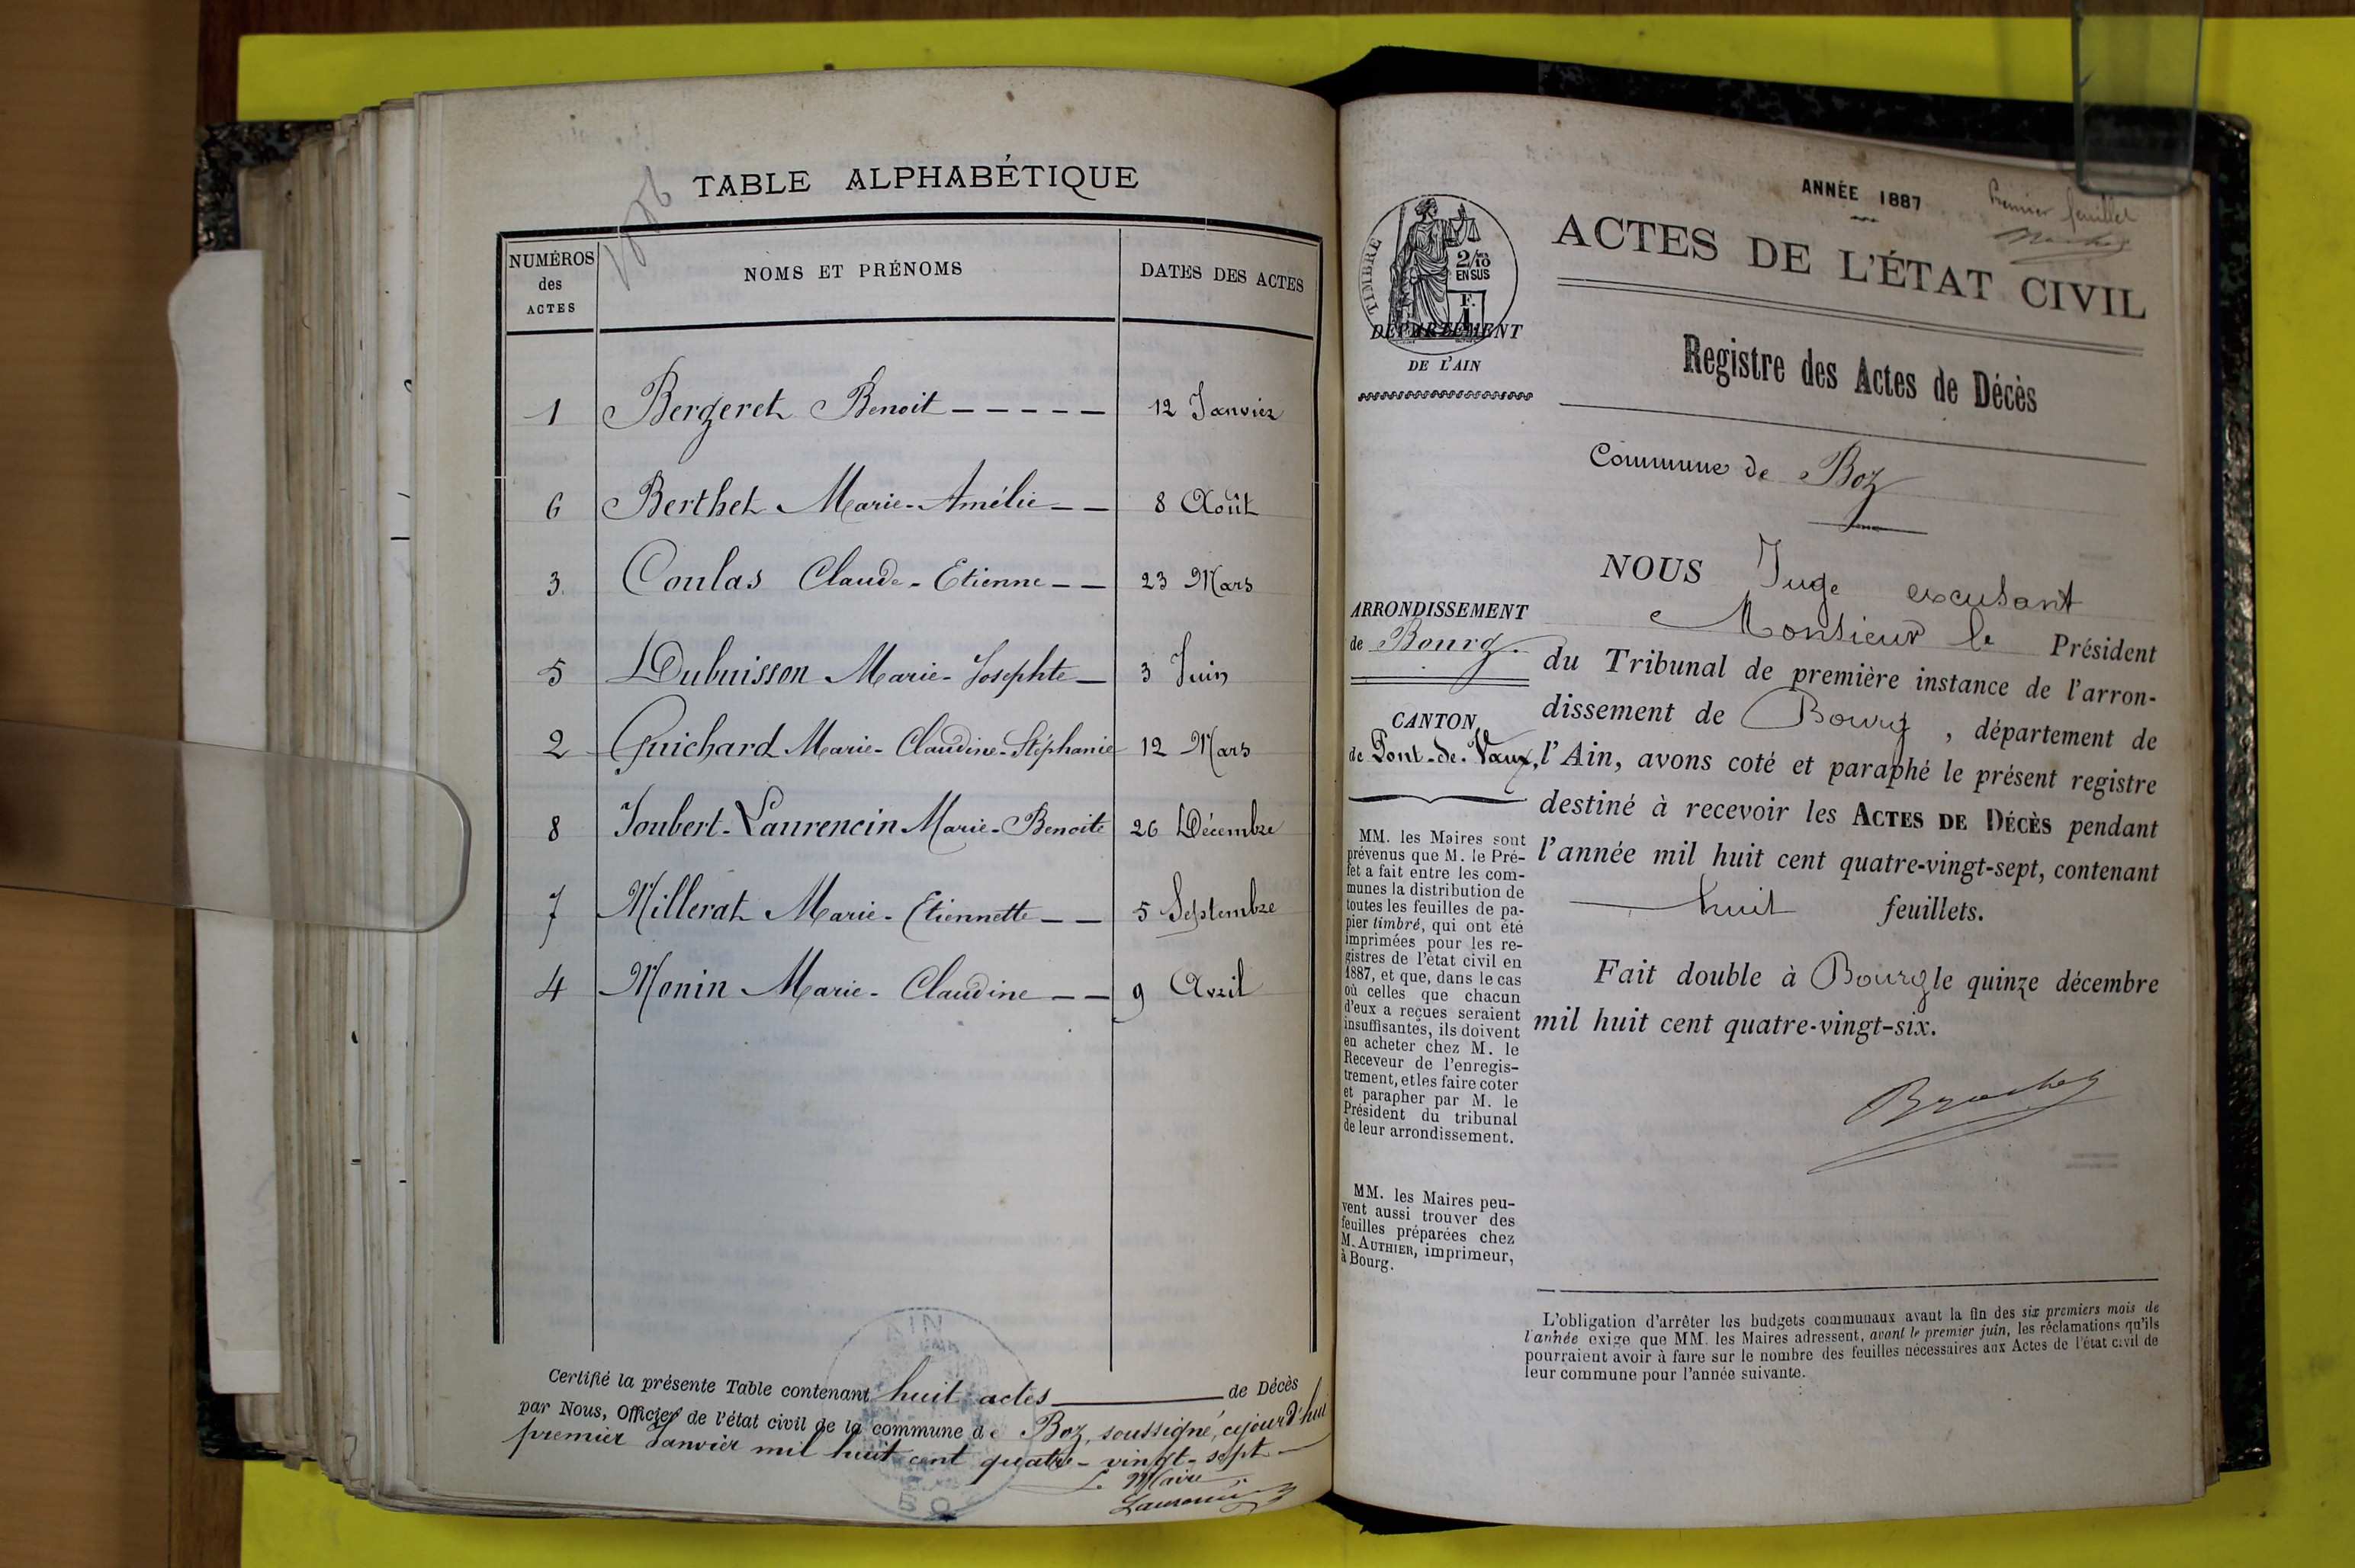 1886
TABLE ALPHABÉTIQUE
NUMÉROS des ACTES NOMS ET PRÉNOMS DATES DES ACTES
1 Bergeret Benoit 12 Janvier
6 Berthet Marie-Amélie 8 Août
3 Coulas Claude-Etienne 23 Mars
5 Dubuisson Marie-Josephte 3 Juin
2 Guichard Marie-Claudine-Stéphanie 12 Mars
8 Joubert-Laurencin Marie-Benoite 26 Décembre
7 Millerat Marie-Etiennette 5 Septembre
4 Monin Marie-Claudine 9 Avril
Certifié la présente Table contenant huit actes de Décès
par Nous, Officier de l'état civil de la commune de Boz, soussigné, cejourd'hui
premier Janvier mil huit cent quatre-vingt-sept
Le Maire
AIN
BO
ANNÉE 1887
Premier feuillet
TIMBRE
2/10
EN SUS
F.
1
ACTES DE L'ÉTAT CIVIL
DÉPARTEMENT
DE L'AIN
Registre des Actes de Décès
Commune de Boz
ARRONDISSEMENT
de Bourg.
CANTON
de Pont-de-Vaux,
MM. les Maires sont
prévenus que M. le Pré-
fet a fait entre les com-
munes la distribution de
toutes les feuilles de pa-
pier timbré, qui ont été
imprimées pour les re-
gistres de l'état civil en
1887, et que, dans le cas
où celles que chacun
d'eux a reçues seraient
insuffisantes, ils doivent
en acheter chez M. le
Receveur de l'enregis-
trement, et les faire coter
et parapher par M. le
Président du tribunal
de leur arrondissement.
MM. les Maires peu-
vent aussi trouver des
feuilles préparées chez
M. AUTHIER, imprimeur,
à Bourg.
NOUS Juge excusant
Monsieur le Président
du Tribunal de première instance de l'arron-
dissement de Bourg, département de
l'Ain, avons coté et paraphé le présent registre
destiné à recevoir les ACTES DE DÉCÈS pendant
l'année mil huit cent quatre-vingt-sept, contenant
huit feuillets.
Fait double à Bourg le quinze décembre
mil huit cent quatre-vingt-six.
L'obligation d'arrêter les budgets communaux avant la fin des six premiers mois de
l'année exige que MM. les Maires adressent, avant le premier juin, les réclamations qu'ils
pourraient avoir à faire sur le nombre des feuilles nécessaires aux Actes de l'état civil de
leur commune pour l'année suivante.